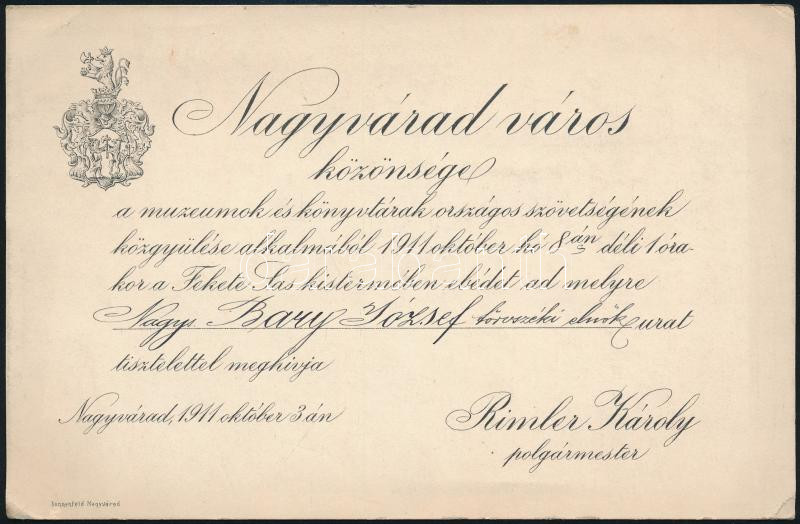 Nagyvárad város
közönsége
a muzeumok és könyvtárak országos szövetségének
közgyülése alkalmából 1911 október hó 8án déli 1 óra-
kor a Fekete Sas kistermében ebédet ad melyre
Nagys. Bary József törvszéki elnök urat
tisztelettel meghivja
Nagyvárad, 1911 október 3án
Rimler Károly
polgármester
Sonnenfeld Nagyvárad